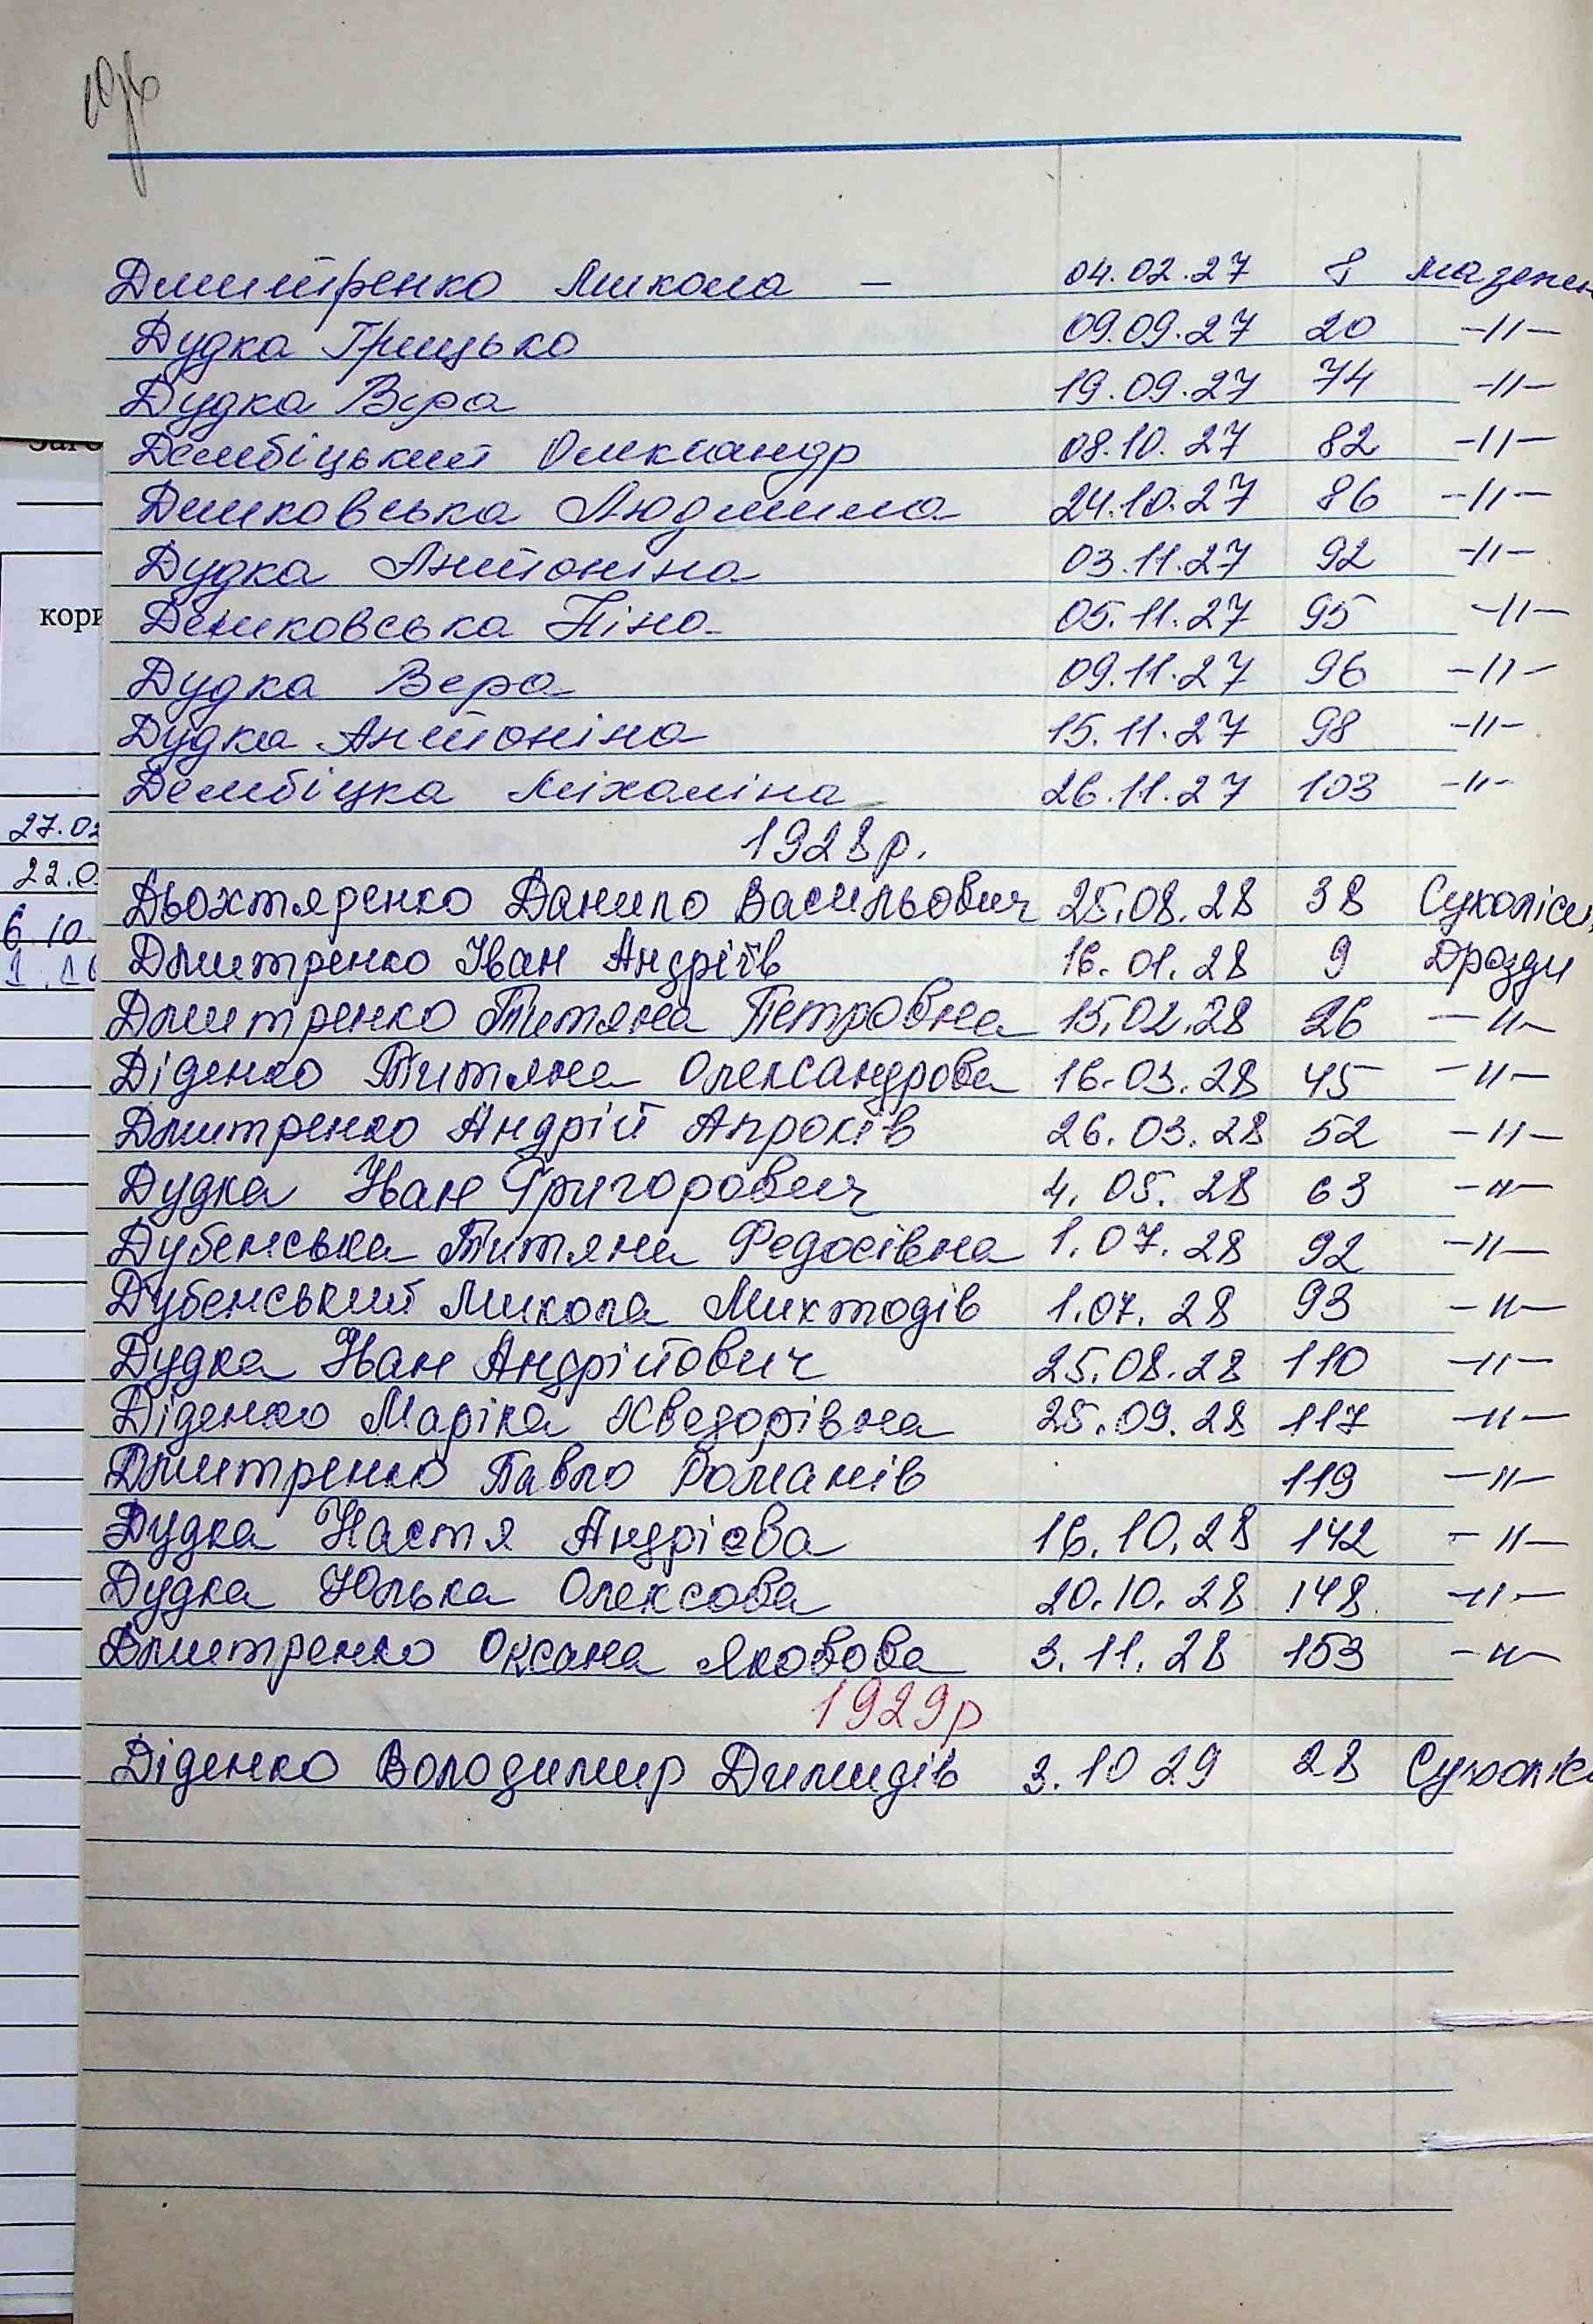 Дмитренко Микола – 04.02.27 8 мазепен
Дудка Грицько 09.09.27 20 -//-
Дудка Віра 19.09.27 74 -//-
Дембіцький Олександр 08.10.27 82 -//-
Димковська Людмила 24.10.27 86 -//-
Дудка Антоніна 03.11.27 92 -//-
Демковська Ніна 05.11.27 95 -//-
Дудка Вера 09.11.27 96 -//-
Дудка Антоніна 15.11.27 98 -//-
Дембіцка Міхаліна 26.11.27 103 -//-
1928р.
Дьохтяренко Данило Васильович 25.08.28 38 Сухоліси
Дмитренко Іван Андріїв 16.01.28 9 Дрозди
Дмитренко Титяна Петровна 15.02.28 26 -//-
Діденко Титяна Олександрова 16.03.28 45 -//-
Дмитренко Андрій 26.03.28 52 -//-
Дудка Іван Григорович 4.05.28 63 -//-
Дубенська Титяна Федосівна 1.07.28 92 -//-
Дубенський Микола 1.07.28 93 -//-
Дудка Іван Андрійович 25.08.28 110 -//-
Діденко Маріка Хведорівна 25.09.28 117 -//-
Дмитренко Павло Романів 119 -//-
Дудка Настя Андрієва 16.10.28 142 -//-
Дудка Юлька Олексова 20.10.28 148 -//-
Дмитренко Оксана Яковова 3.11.28 153 -//-
1929р
Діденко Володимир 3.10 29 28 Сухоліс
кори
27.02
22.0
6.10